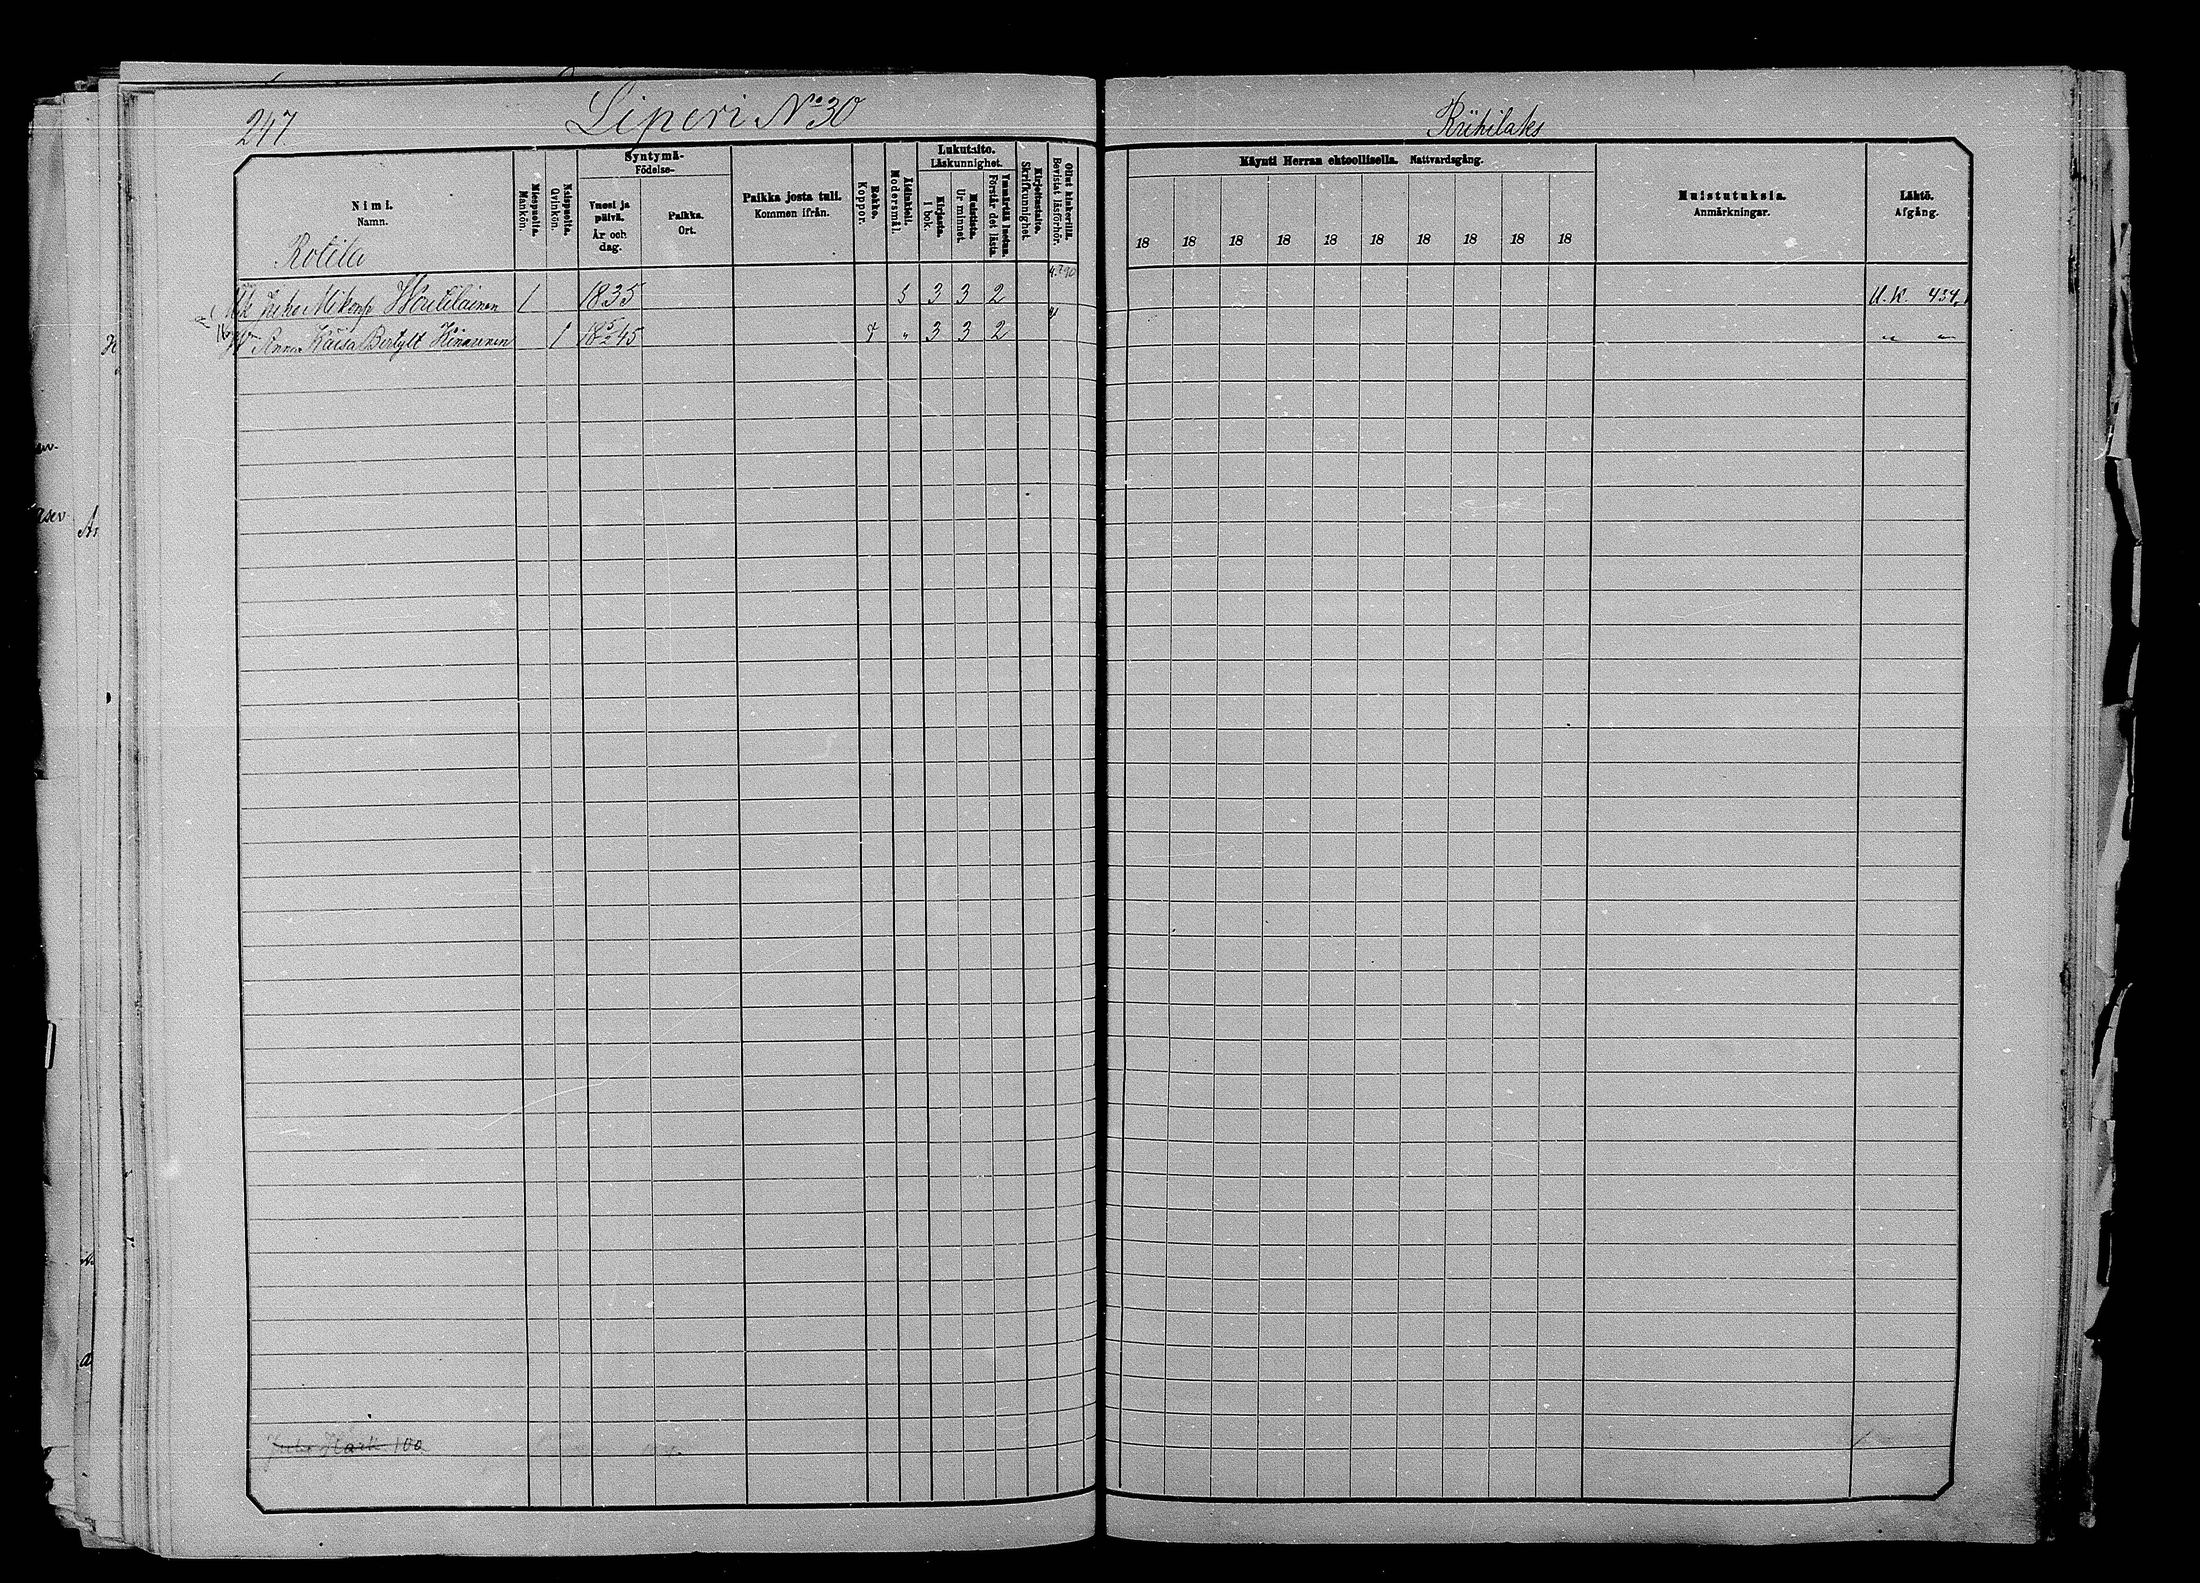 247.
Liperi № 30
Riihilaks
Nimi.
Namn.
Rotila
Miespuolia.
Mankön.
Naispuolia.
Qvinkön.
Syntymä-
Födelse-
Vuosi ja
päivä.
År och
dag.
Paikka.
Ort.
Paikka josta tuli.
Kommen ifrån.
Rokko.
Koppor.
Äidinkieli.
Modersmål.
Lukutaito.
Läskunnighet.
Kirjasta.
I bok.
Muistista.
Ur minnet.
Ymmärtää luetun.
Förstår det lästa.
Kirjoitustaito.
Skrifkunnighet.
Ollut kinkerillä.
Bevistat läsförhör.
Käynti Herran ehtoollisella. Nattvardsgång.
18 18 18 18 18 18 18 18 18 18
Muistutuksia.
Anmärkningar.
Lähtö.
Afgång.
Mikonp 1 1835 5 3 3 2 U. K. 434
Anna Kaisa Bertylt Hirvonen 1 18 5 45 " 3 3 2 " "
100